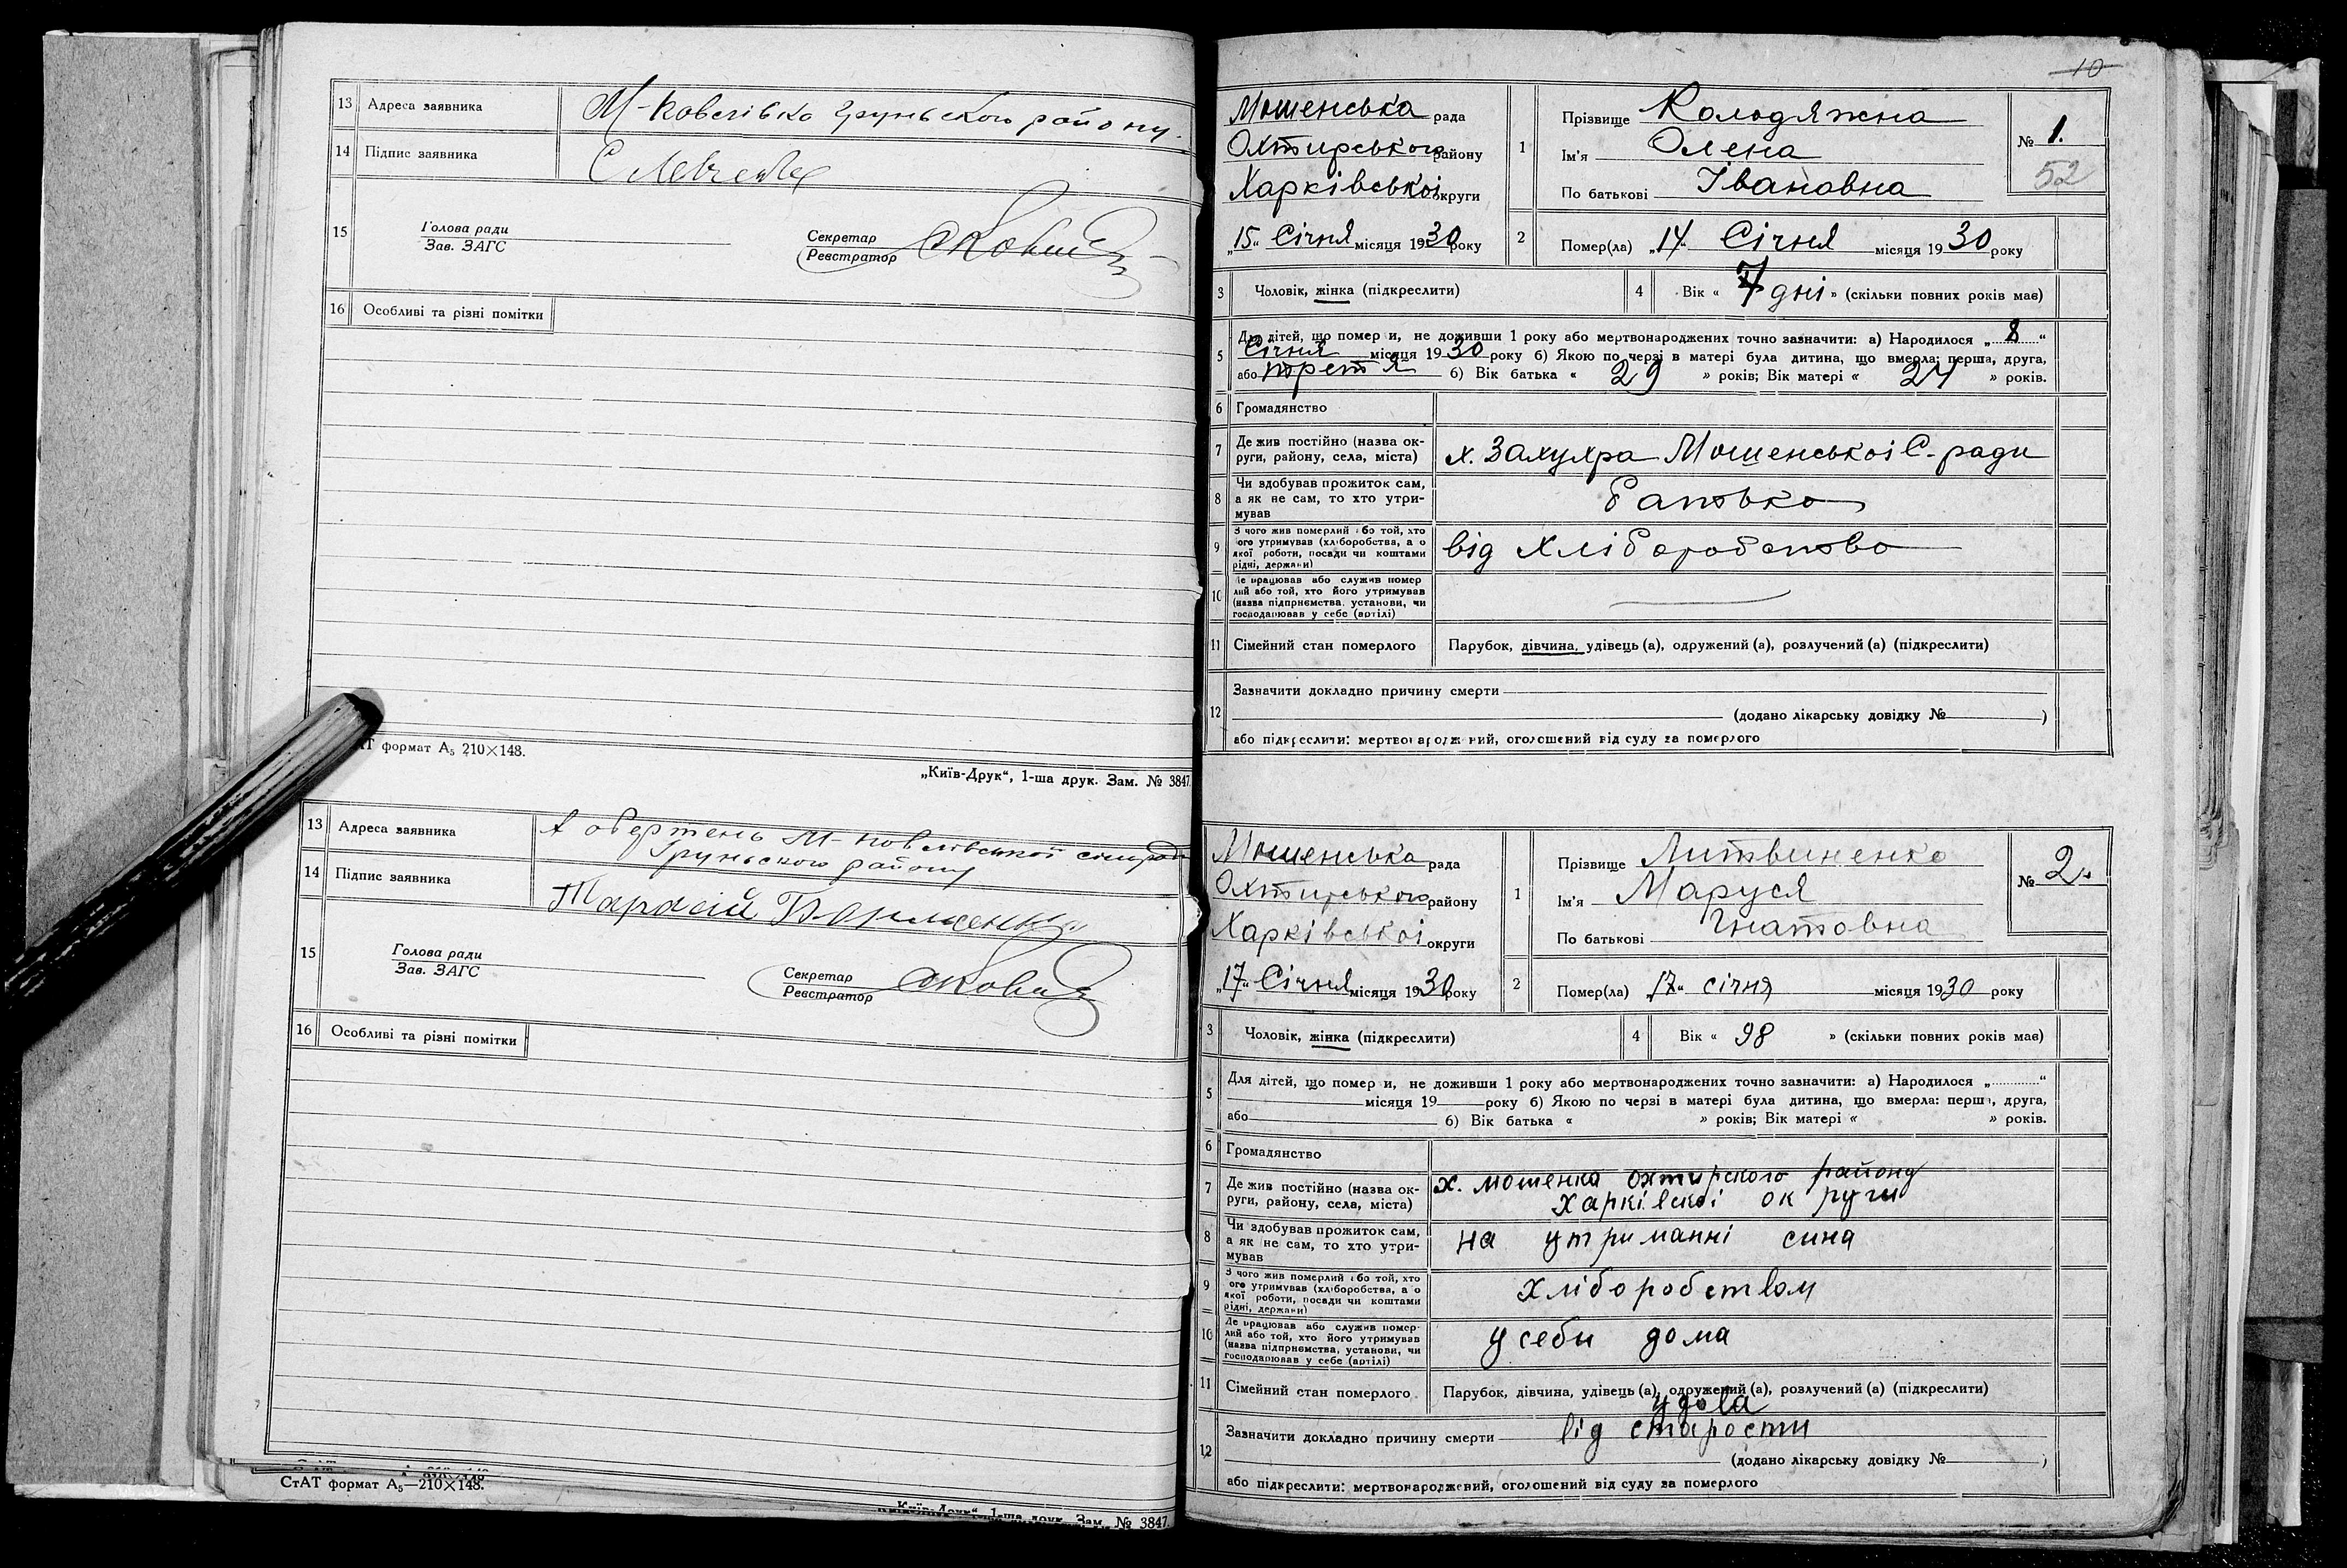 13 Адреса заявника М-Ковелівка Груньського району.
14 Підпис заявника
15 Голова ради
Зав. ЗАГС
Секретар
Реєстратор
16 Особливі та різні помітки
формат А₅ 210×148.
„Київ-Друк“, 1-ша друк. Зам. № 3847
13 Адреса заявника М-Ковелівської
Груньського району
14 Підпис заявника Тарасій
15 Голова ради
Зав. ЗАГС
Секретар
Реєстратор
16 Особливі та різні помітки
СтАТ формат А₅—210×148.
„Київ-Друк“, 1-ша друк. Зам. № 3847
10
Мошенська рада
Охтирського району
Харківської округи
„15“ Січня місяця 1930 року
1 Прізвище Колодяжна
Ім'я Олена
По батькові Івановна
№ 1.
52
2 Помер(ла) „14“ Січня місяця 1930 року
3 Чоловік, жінка (підкреслити)
4 Вік « 7 дні » (скільки повних років мав)
5 Для дітей, що померли, не доживши 1 року або мертвонароджених точно зазначити: а) Народилося „8“
Січня місяця 1930 року б) Якою по черзі в матері була дитина, що вмерла: перша, друга,
або третя б) Вік батька « 29 » років; Вік матері « 24 » років.
6 Громадянство
7 Де жив постійно (назва округи, району, села, міста) х. Залухра Мошенської С-ради
8 Чи здобував прожиток сам, а як не сам, то хто утримував батько
9 З чого жив померлий або той, хто його утримував (хліборобства, а о якої роботи, посади чи коштами рідні, держави) від хліборобство
10 Де працював або служив померлий або той, хто його утримував (назва підприємства, установи, чи господарював у себе (артілі)
11 Сімейний стан померлого Парубок, дівчина, удівець (а), одружений (а), розлучений (а) (підкреслити)
12 Зазначити докладно причину смерти
(додано лікарську довідку № )
або підкреслити: мертвонароджений, оголошений від суду за померлого
Мошенська рада
Охтирського району
Харківської округи
„17“ Січня місяця 1930 року
1 Прізвище Литвиненко
Ім'я Маруся
По батькові Гнатовна
№ 2.
2 Помер(ла) „17“ січня місяця 1930 року
3 Чоловік, жінка (підкреслити)
4 Вік « 98 » (скільки повних років мав)
5 Для дітей, що померли, не доживши 1 року або мертвонароджених точно зазначити: а) Народилося „ “
місяця 19 року б) Якою по черзі в матері була дитина, що вмерла: перша, друга,
або б) Вік батька « » років; Вік матері « » років.
6 Громадянство
7 Де жив постійно (назва округи, району, села, міста) х. мошенка охтирского району
Харківскої округи
8 Чи здобував прожиток сам, а як не сам, то хто утримував на утриманні сина
9 З чого жив померлий або той, хто його утримував (хліборобства, а о якої роботи, посади чи коштами рідні, держави) хліборобством
10 Де працював або служив померлий або той, хто його утримував (назва підприємства, установи, чи господарював у себе (артілі) у себи дома
11 Сімейний стан померлого Парубок, дівчина, удівець (а), одружений (а), розлучений (а) (підкреслити)
удова
12 Зазначити докладно причину смерти від старости
(додано лікарську довідку № )
або підкреслити: мертвонароджений, оголошений від суду за померлого